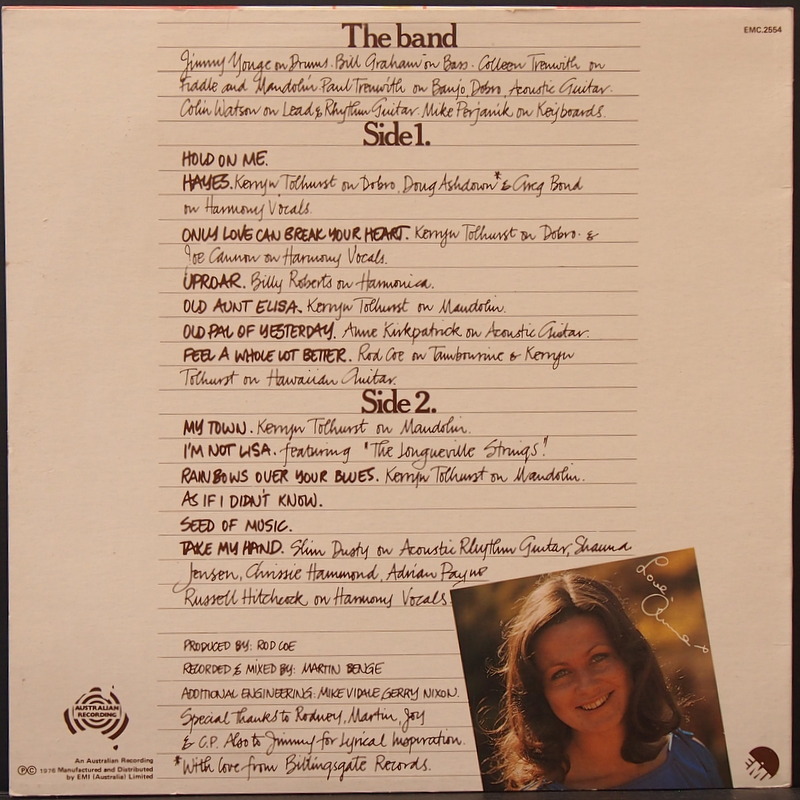 The band
EMC.2554
Jimmy Yonge on Drums. Bill Graham on Bass. Colleen Trenwith on
Fiddle and Mandolin. Paul Trenwith on Banjo, Dobro, Acoustic Guitar.
Colin Watson on Lead & Rhythm Guitar. Mike Perjanik on Keyboards.
Side 1.
HOLD ON ME.
HAYES. Kerryn Tolhurst on Dobro, Doug Ashdown* & Greg Bond
on Harmony Vocals.
ONLY LOVE CAN BREAK YOUR HEART. Kerryn Tolhurst on Dobro. &
Joe Cannon on Harmony Vocals.
UPROAR. Billy Roberts on Harmonica.
OLD AUNT ELISA. Kerryn Tolhurst on Mandolin.
OLD PAL OF YESTERDAY. Anne Kirkpatrick on Acoustic Guitar.
FEEL A WHOLE LOT BETTER. Rod Coe on Tambourine & Kerryn
Tolhurst on Hawaiian Guitar.
Side 2.
MY TOWN. Kerryn Tolhurst on Mandolin.
I'M NOT LISA. featuring "The Longueville Strings".
RAINBOWS OVER YOUR BLUES. Kerryn Tolhurst on Mandolin.
AS IF I DIDN'T KNOW.
SEED OF MUSIC.
TAKE MY HAND. Slim Dusty on Acoustic Rhythm Guitar, Shauna
Jensen, Chrissie Hammond, Adrian Payne
Russell Hitchcock on Harmony Vocals.
Love Anne x
PRODUCED BY: ROD COE
RECORDED & MIXED BY: MARTIN BENGE
ADDITIONAL ENGINEERING: MIKE VIDALE, GERRY NIXON.
Special Thanks to Rodney, Martin, Joy
& C.P. Also to Jimmy for Lyrical Inspiration.
*With love from Billingsgate Records.
AUSTRALIAN
RECORDING
An Australian Recording
Ⓟ© 1976 Manufactured and Distributed
by EMI (Australia) Limited
EMI